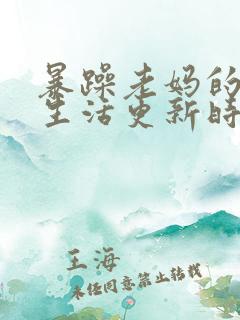 暴躁老妈的
生活更新时
王海
未经同意禁止转载